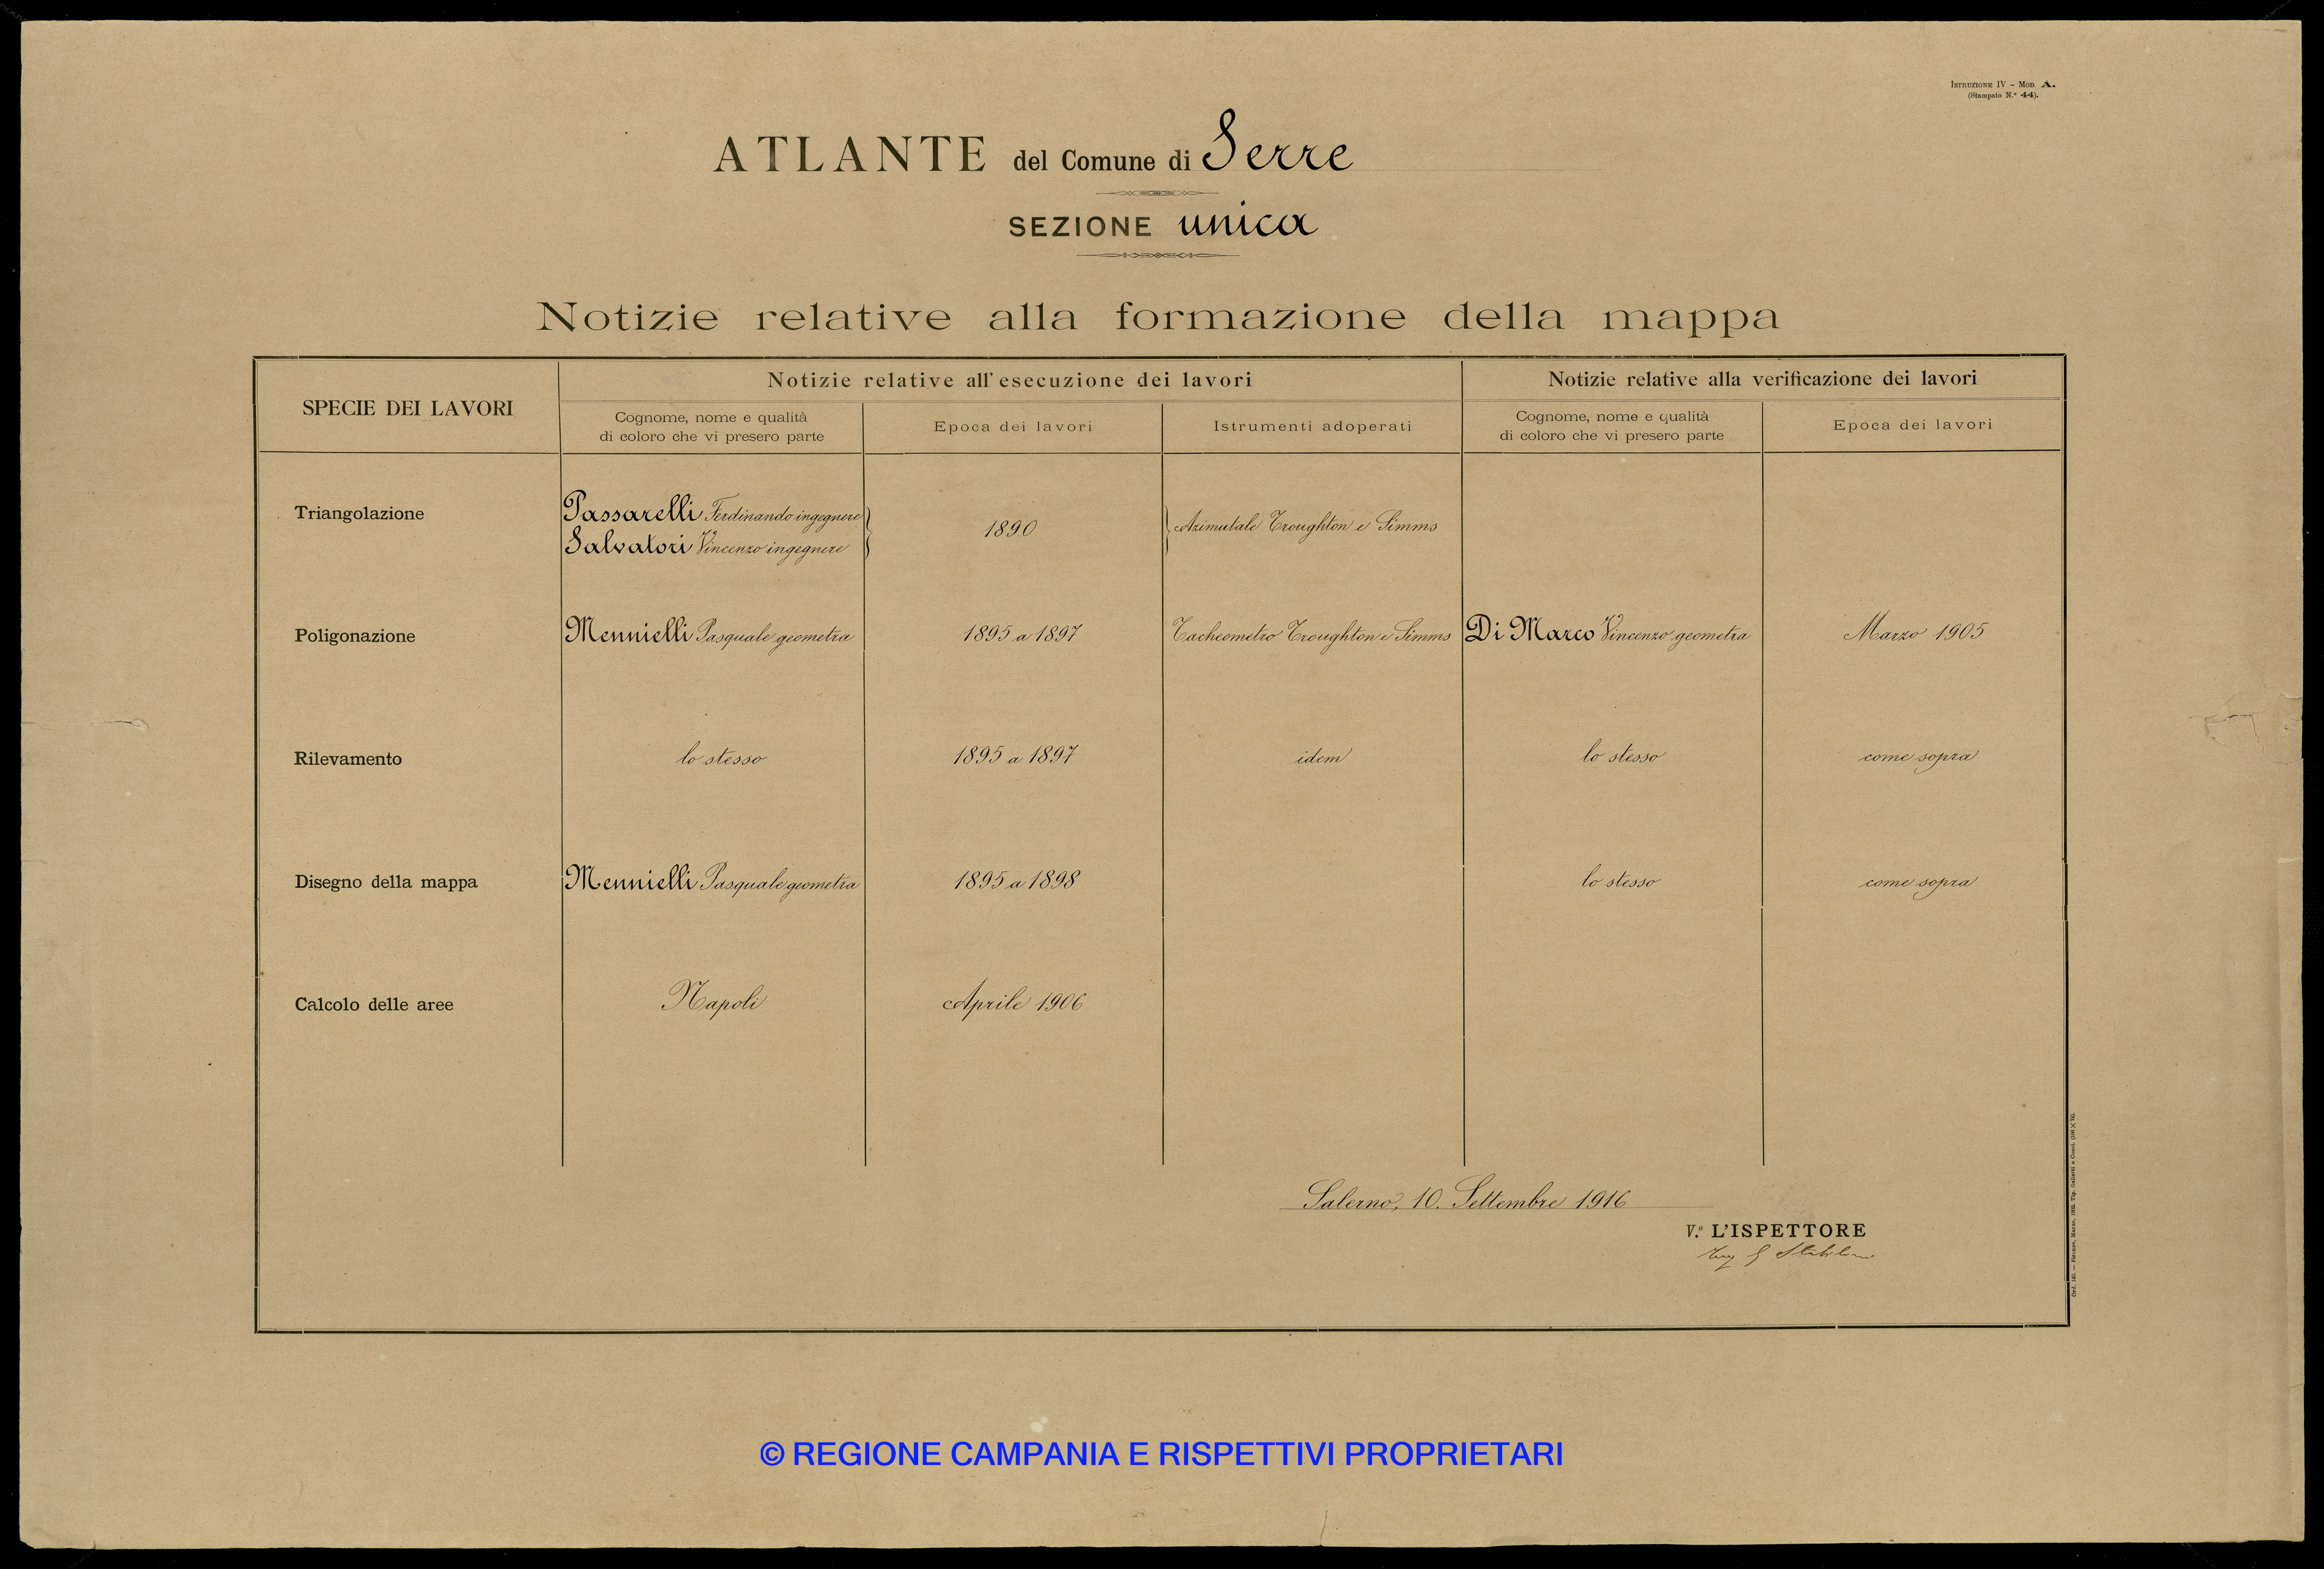 ISTRUZIONE IV – MOD A.
(Stampato N.° 44).
ATLANTE del Comune di Serre
SEZIONE unica
Notizie relative alla formazione della mappa
SPECIE DEI LAVORI
Notizie relative all'esecuzione dei lavori
Notizie relative alla verificazione dei lavori
Cognome, nome e qualità
di coloro che vi presero parte
Epoca dei lavori
Istrumenti adoperati
Cognome, nome e qualità
di coloro che vi presero parte
Epoca dei lavori
Triangolazione
Passarelli Ferdinando ingegnere
Salvatori Vincenzo ingegnere
1890
Azimutale Troughton e Simms
Poligonazione
Mennielli Pasquale geometra
1895 a 1897
Tacheometro Troughton e Simms
Di Marco Vincenzo geometra
Marzo 1905
Rilevamento
lo stesso
1895 a 1897
idem
lo stesso
come sopra
Disegno della mappa
Mennielli Pasquale geometra
1895 a 1898
lo stesso
come sopra
Calcolo delle aree
Napoli
Aprile 1906
Salerno, 10. Settembre 1916
V.° L'ISPETTORE
© REGIONE CAMPANIA E RISPETTIVI PROPRIETARI